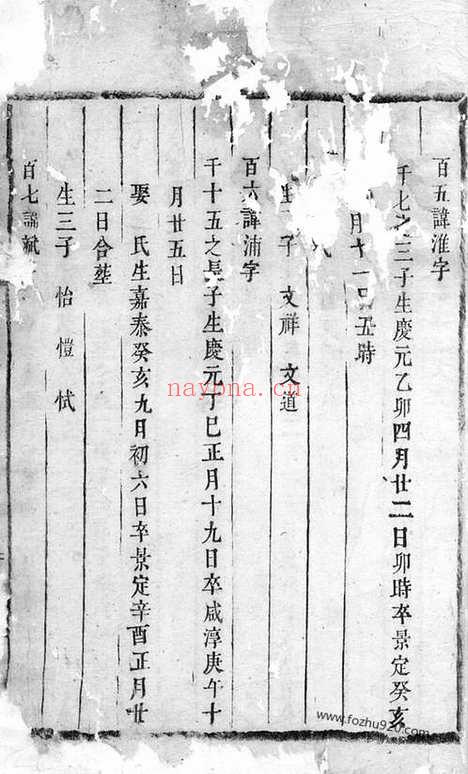 百五諱淮字
千七之三子生慶元乙卯四月廿二日卯時卒景定癸亥
月十一日丑時
生 子 文祥 文道
百六諱浦字
千十五之長子生慶元丁巳正月十九日卒咸淳庚午十
月廿五日
娶 氏生嘉泰癸亥九月初六日卒景定辛酉正月廿
二日合塟
生三子 怡 愷 恜
百七諱斌
nayona.cn
www.fozhu920.com